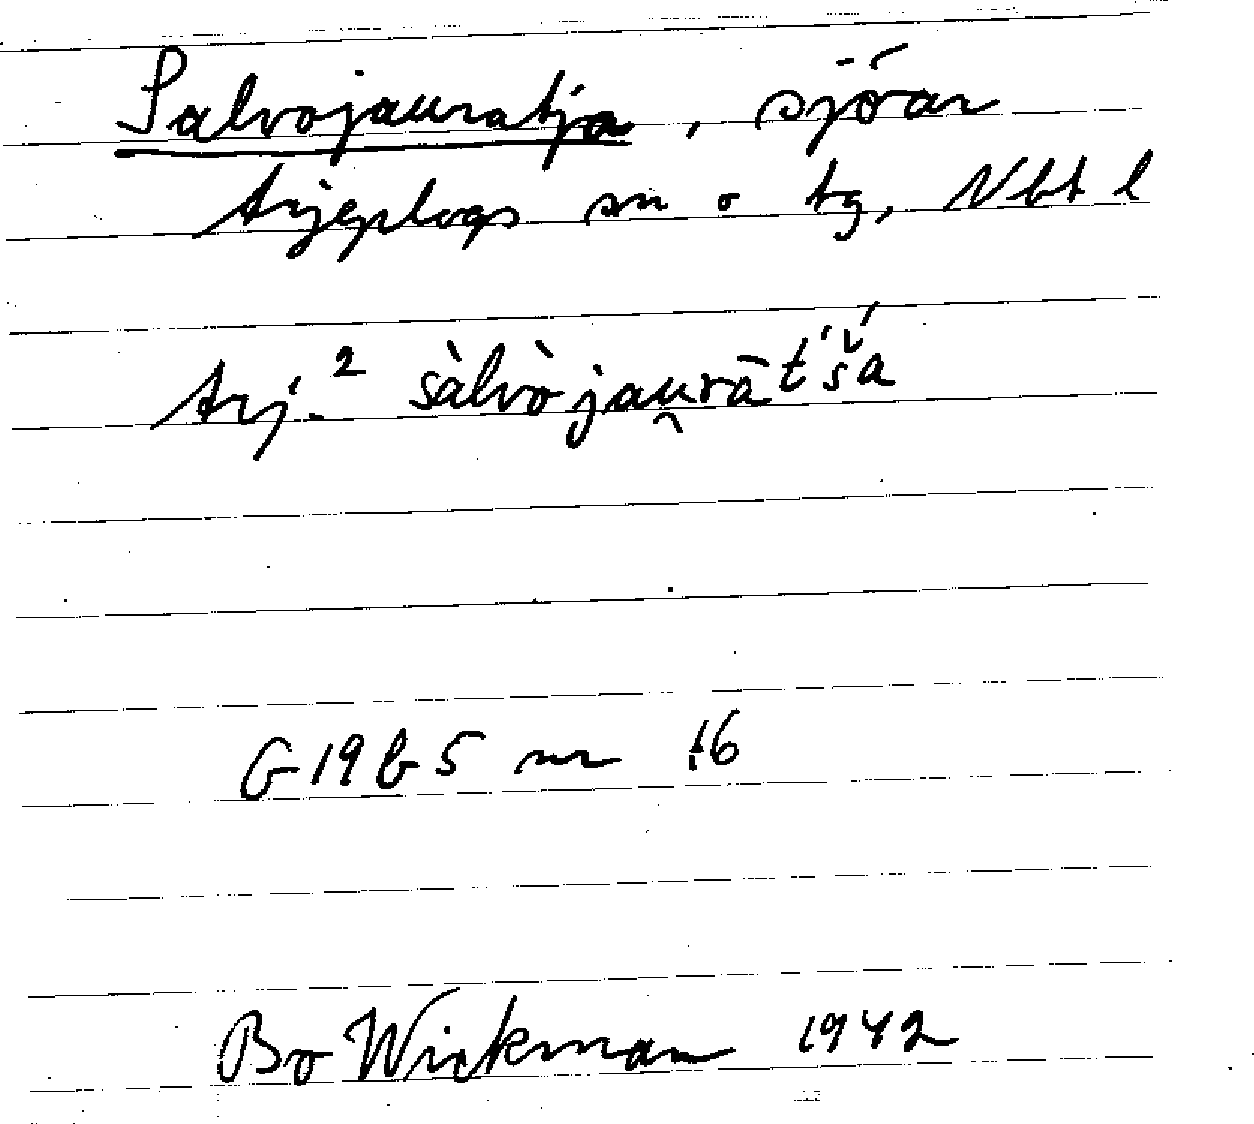 Salvojauratja, sjöar
Arjeplogs sn o tg, Nbt l
Arj.² sàlvòjau̯rāt́š́a
G 19 b 5 nr 16
Bo Wickman 1942